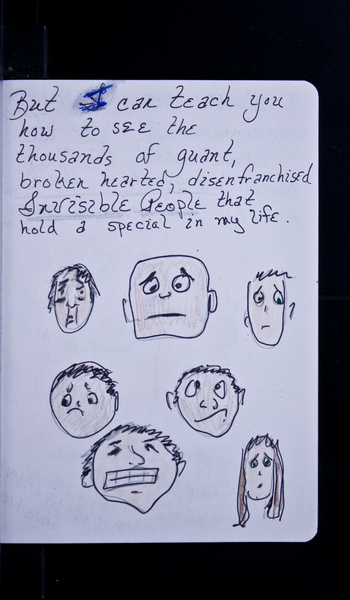 But I can teach you
how to see the
thousands of guant,
broken hearted, disenfranchised
Invisible People that
hold a special in my life.